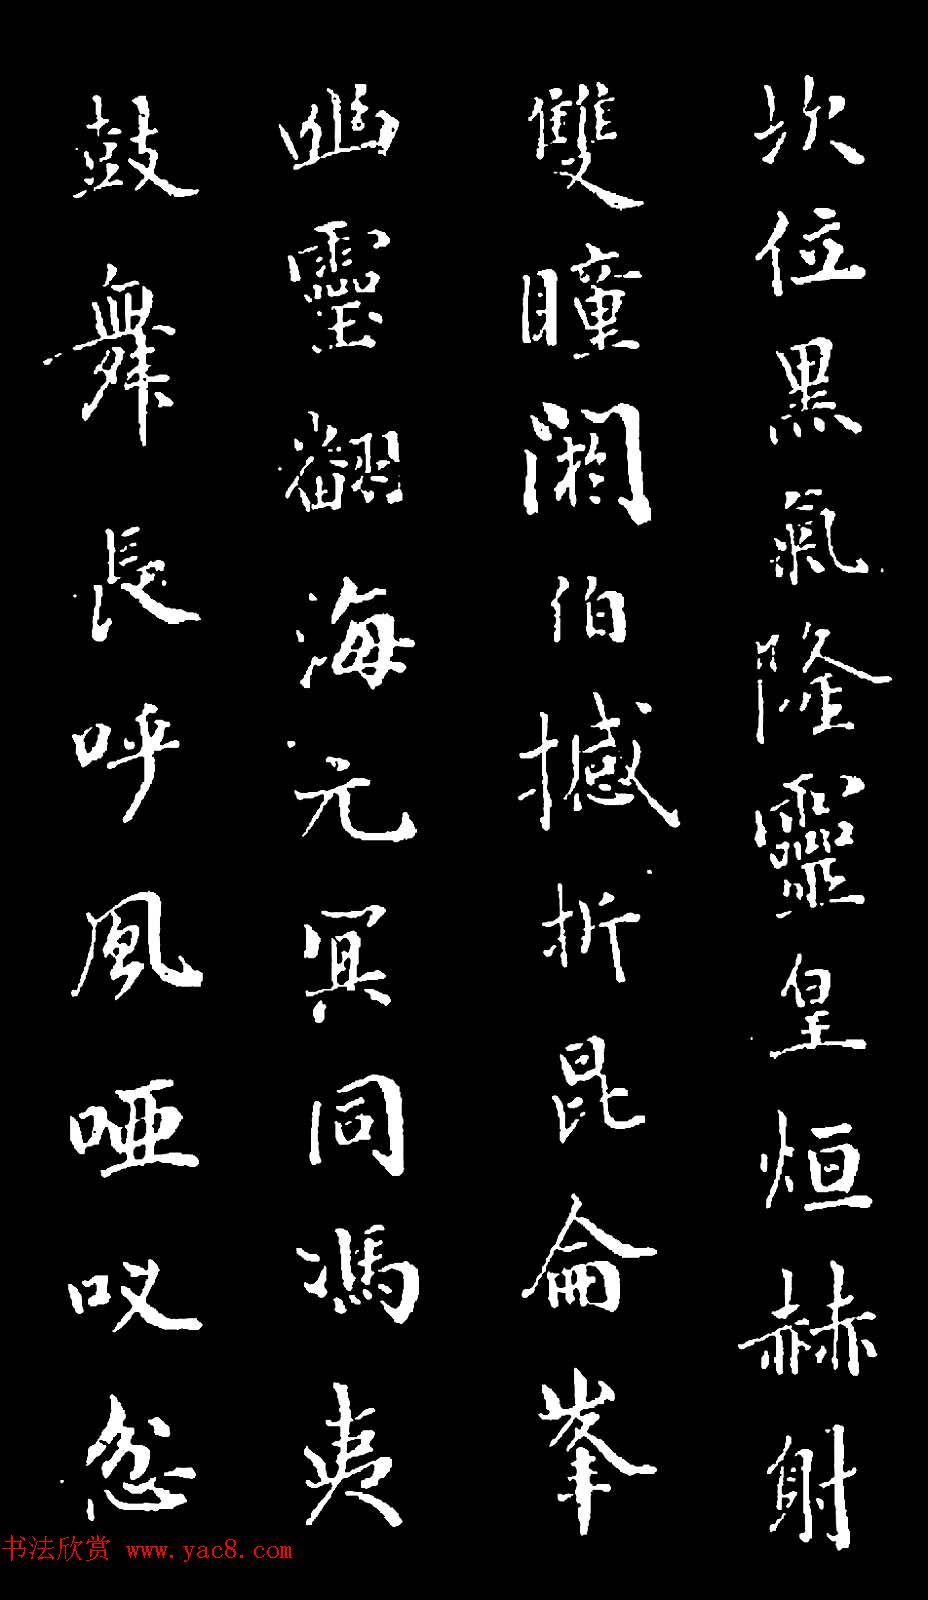 坎位黑氣隆靈皇烜赫射
雙瞳閼伯撼折昆侖峯
幽靈翻海元冥同馮夷
鼓舞長呼風啞哎忽
书法欣赏 www.yac8.com